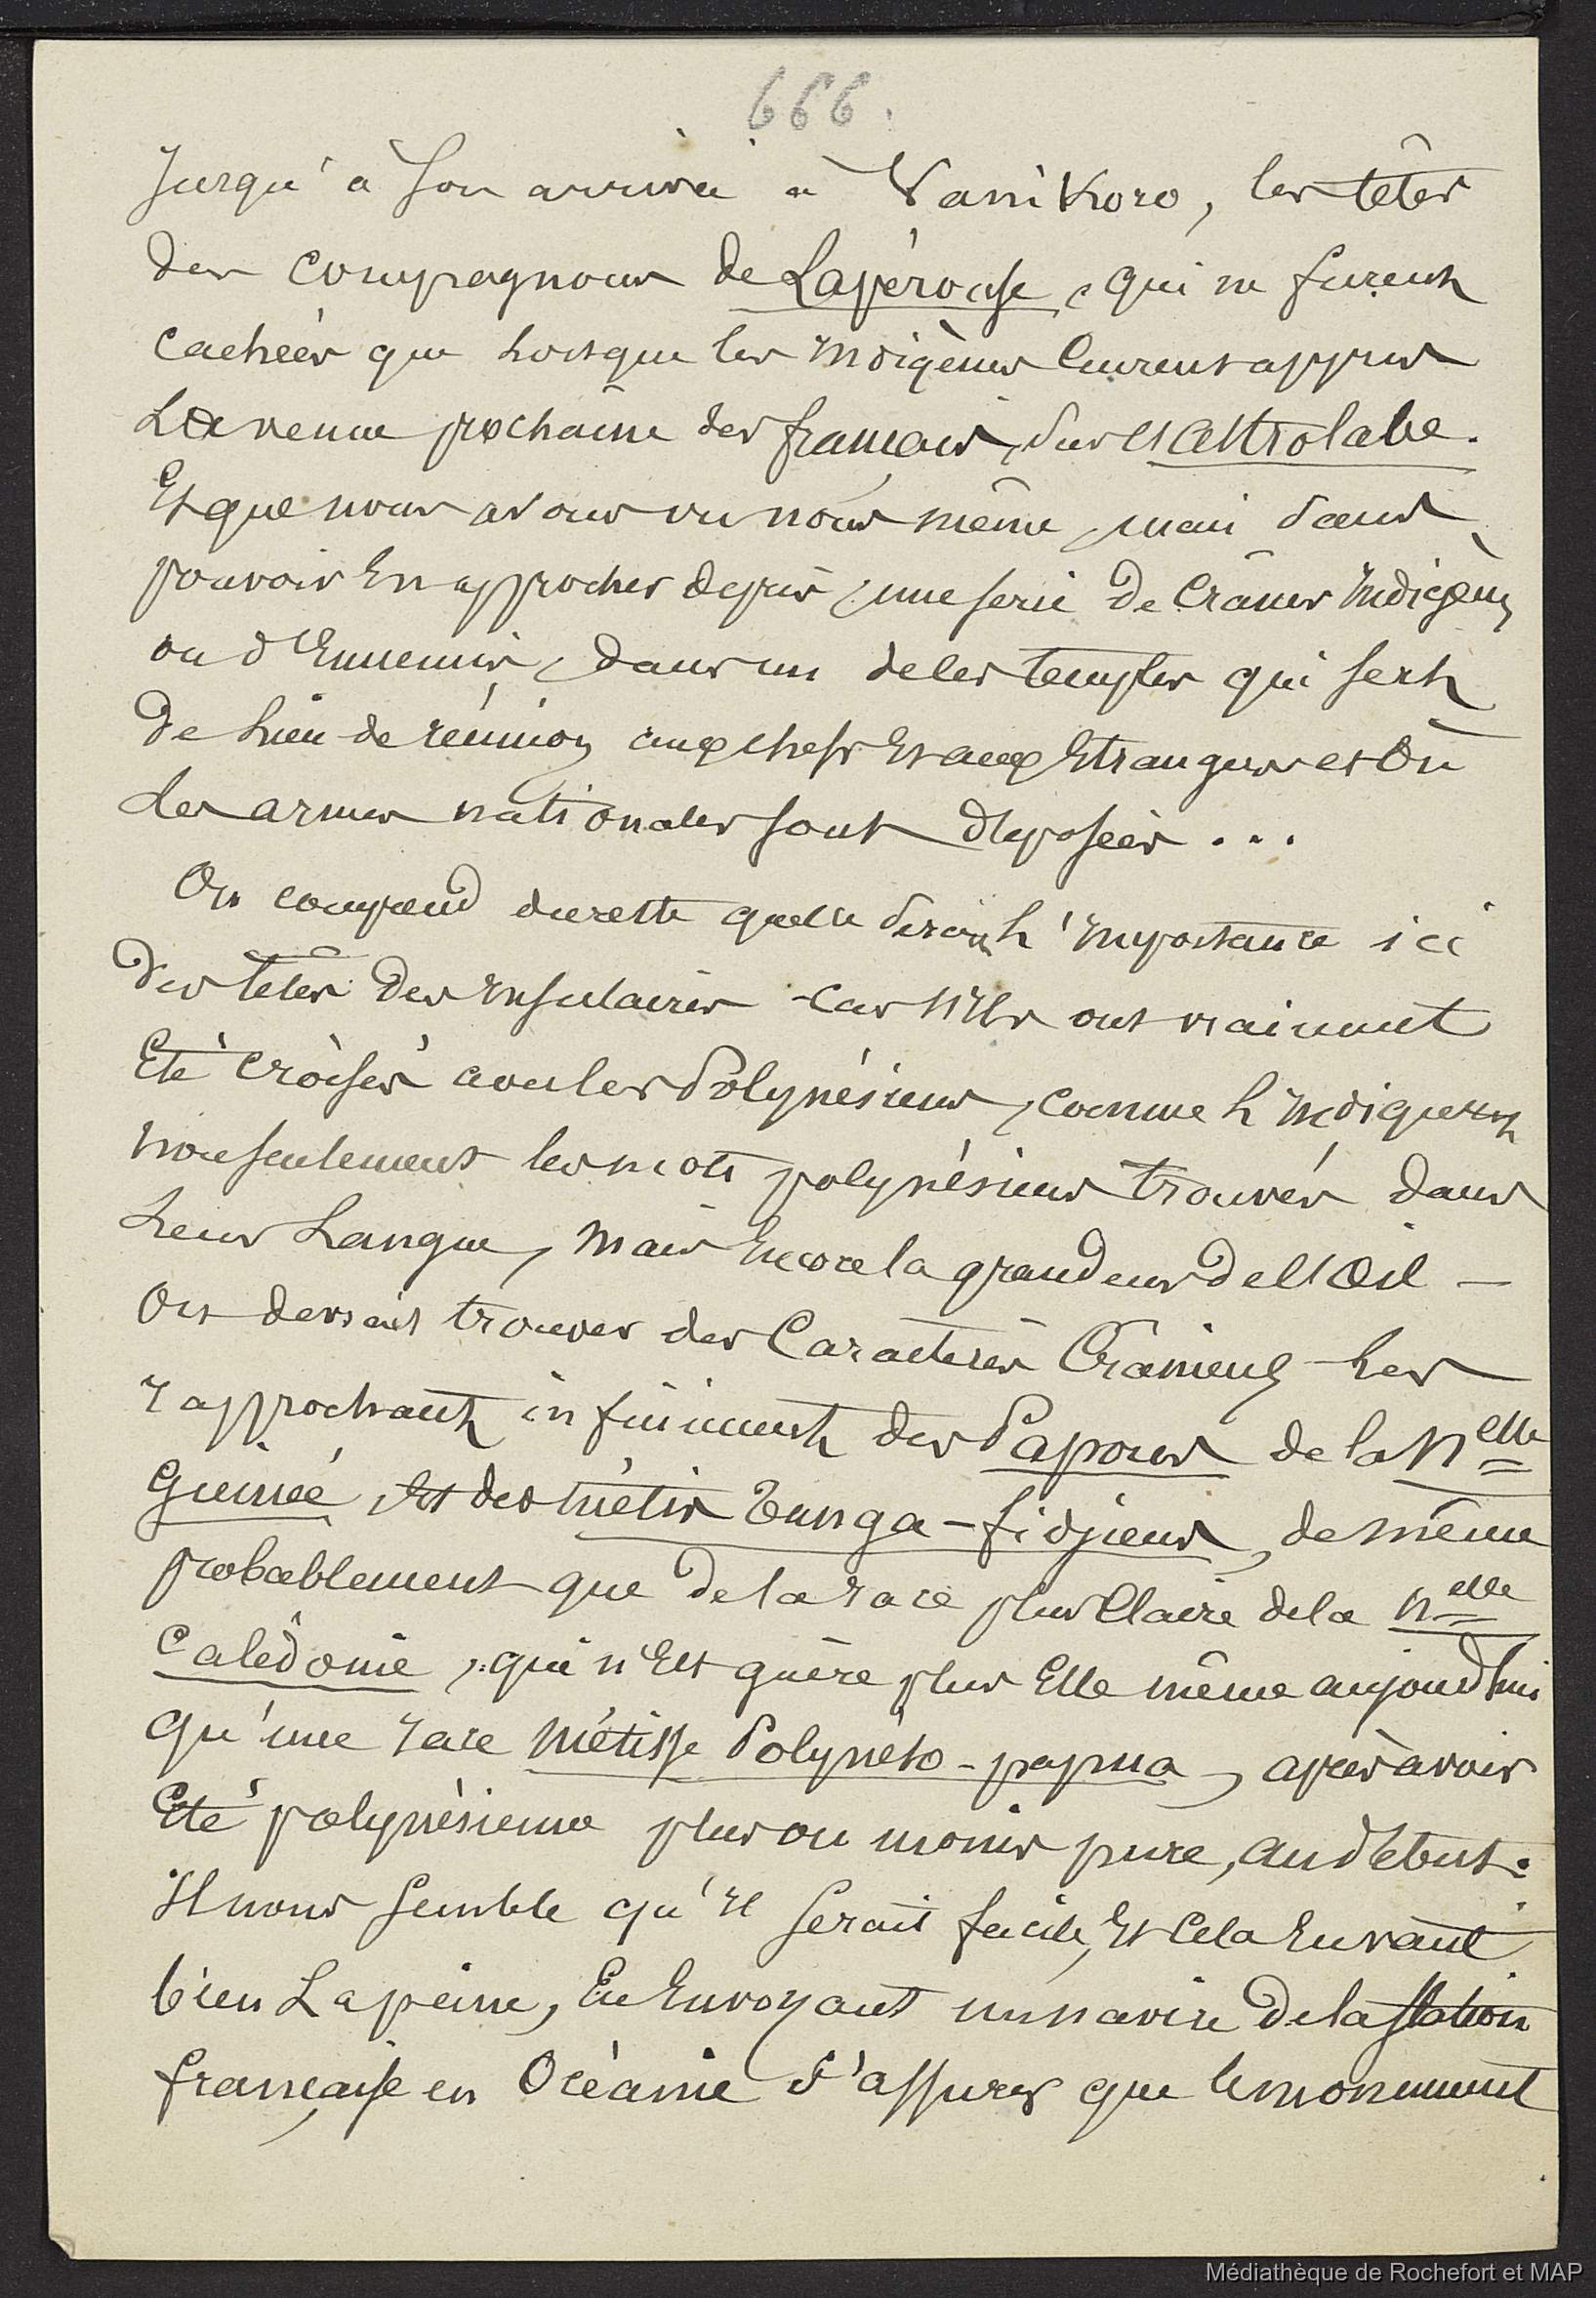 666.
Jusqu'à son arrivée à Vanikoro, les têtes
des compagnons de Lapérouse, qui ne furent
cachées que lorsque les indigènes eurent appris
La venue prochaine des français, sur l'astrolabe.
Et que nous avons vu nous même, mais sans
pouvoir en approcher depuis, une serie de crânes indigènes
ou d'Ennemis, dans un de les temples qui sert
de lieu de réunion aux chefs Et aux Etrangers et où
les armes nationales sont déposées ...
On comprend du reste quelle serait l'importance ici
des têtes des insulaires car s'ils ont vraiment
Eté croisés avec les Polynésiens, comme l'indiquent
non seulement les mots polynésiens trouvés dans
leur Langue, mais Encore la grandeur de l'œil —
On devrait trouver des Caractères Crâniens les
rapprochant infiniment des Papous de la Nelle
Guinée, et des métis Tunga-fidjiens, de même
probablement que de la race plus Claire de la Nelle
Calédonie, qui n'Est guère plus Elle même aujourd'hui
qu'une race métisse Polynéso-papua, après avoir
Eté polynésienne plus ou moins pure, au début.
Il nous semble qu'il serait facile, Et cela En vaut
bien La peine, En Envoyant un navire de la station
française en Océanie s'assurer que le monument
Médiathèque de Rochefort et MAP